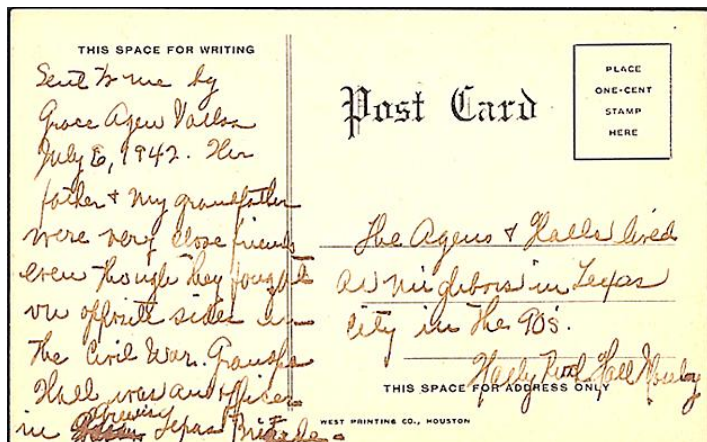 THIS SPACE FOR WRITING
Sent to me by
Grace Agen
July 6, 1942. Her
father & my grandfather
were very close friends
even though they fought
on opposite sides in
the Civil War. Grandpa
Hall was an officer
in Texas Brigade.
Post Card
PLACE
ONE-CENT
STAMP
HERE
The Agens & Halls lived
as neighbors in Texas
City in the 90's.
Hall
THIS SPACE FOR ADDRESS ONLY
WEST PRINTING CO., HOUSTON